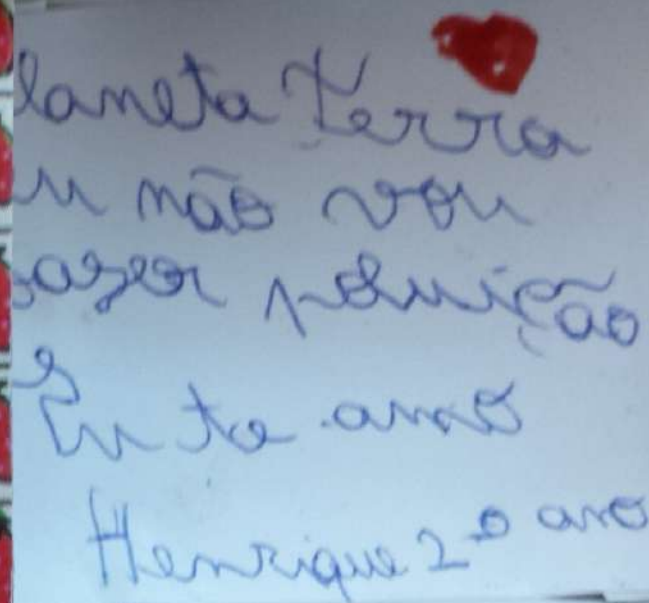 laneta terra
u não vou
azer poluição
Eu te amo
Henrique 2º ano